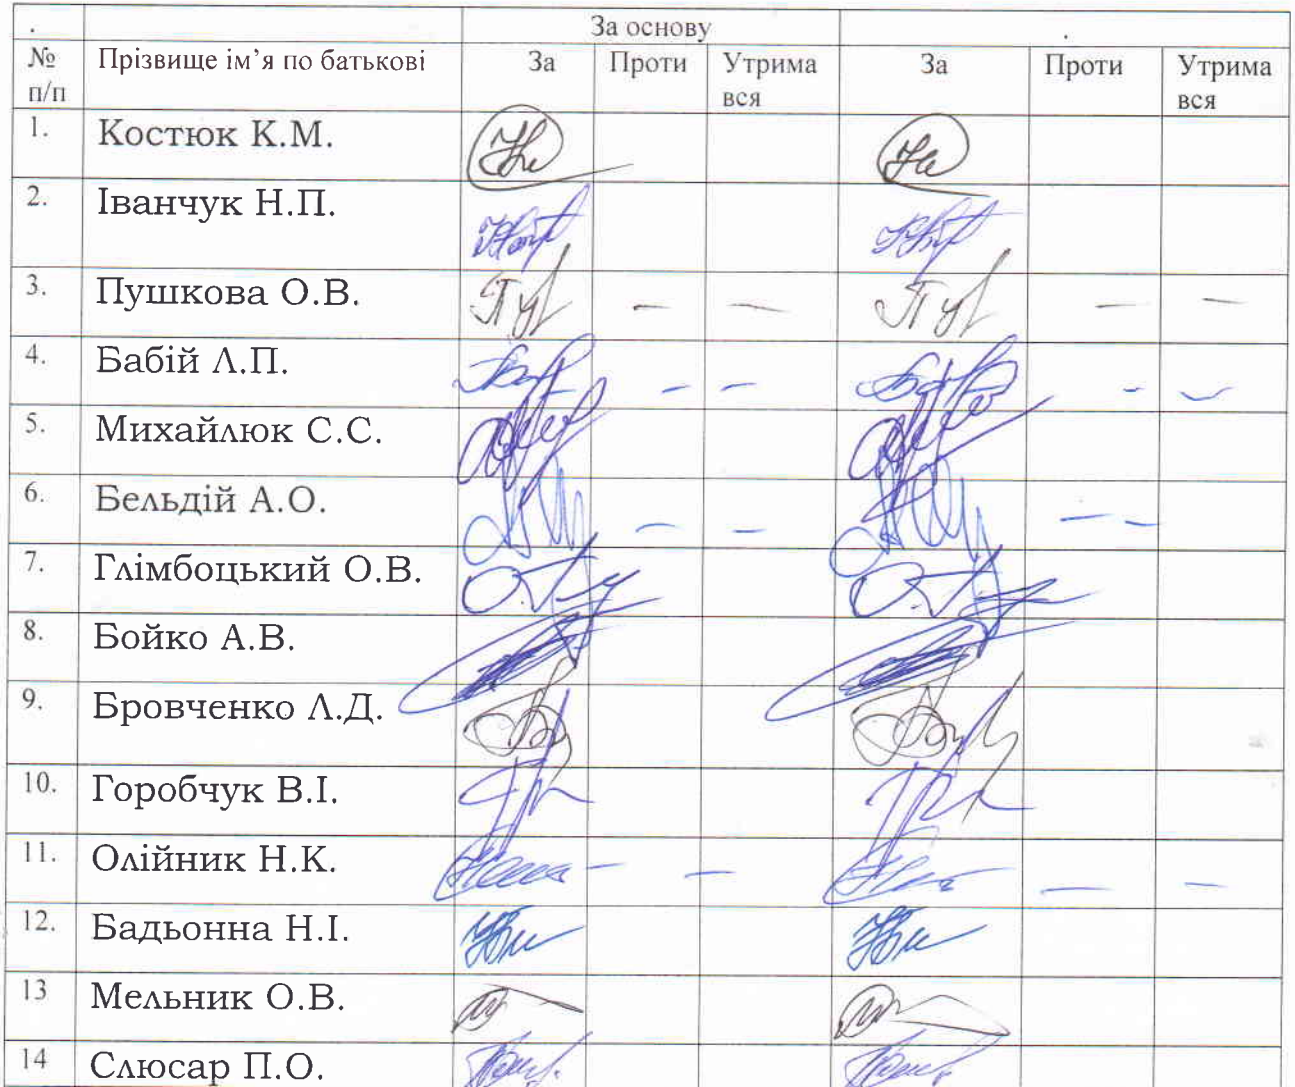 За основу
№ п/п Прізвище ім’я по батькові За Проти Утрима вся За Проти Утрима вся
1. Костюк К.М.
2. Іванчук Н.П.
3. Пушкова О.В. — — — —
4. Бабій Л.П. — — — —
5. Михайлюк С.С.
6. Бельдій А.О. — — — —
7. Глімбоцький О.В.
8. Бойко А.В.
9. Бровченко Л.Д.
10. Горобчук В.І.
11. Олійник Н.К. — — — —
12. Бадьонна Н.І.
13 Мельник О.В.
14 Слюсар П.О.